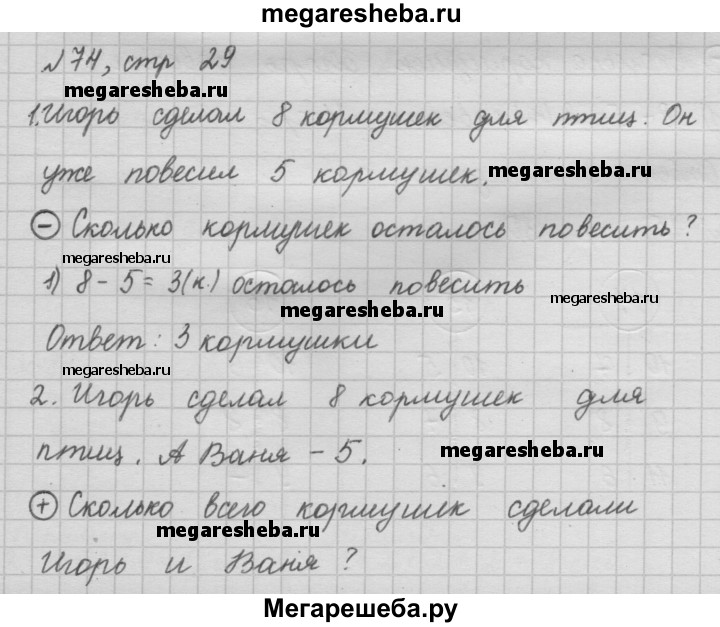 megaresheba.ru
№ 74, стр 29
megaresheba.ru
1. Игорь сделал 8 кормушек для птиц. Он
уже повесил 5 кормушек.
megaresheba.ru
⊖ Сколько кормушек осталось повесить?
1) 8 - 5 = 3 (к.) осталось повесить
megaresheba.ru
megaresheba.ru
Ответ: 3 кормушки
megaresheba.ru
2. Игорь сделал 8 кормушек для
птиц. А Ваня - 5.
megaresheba.ru
⊕ Сколько всего кормушек сделали
megaresheba.ru
Игорь и Ваня?
Мегарешеба.ру